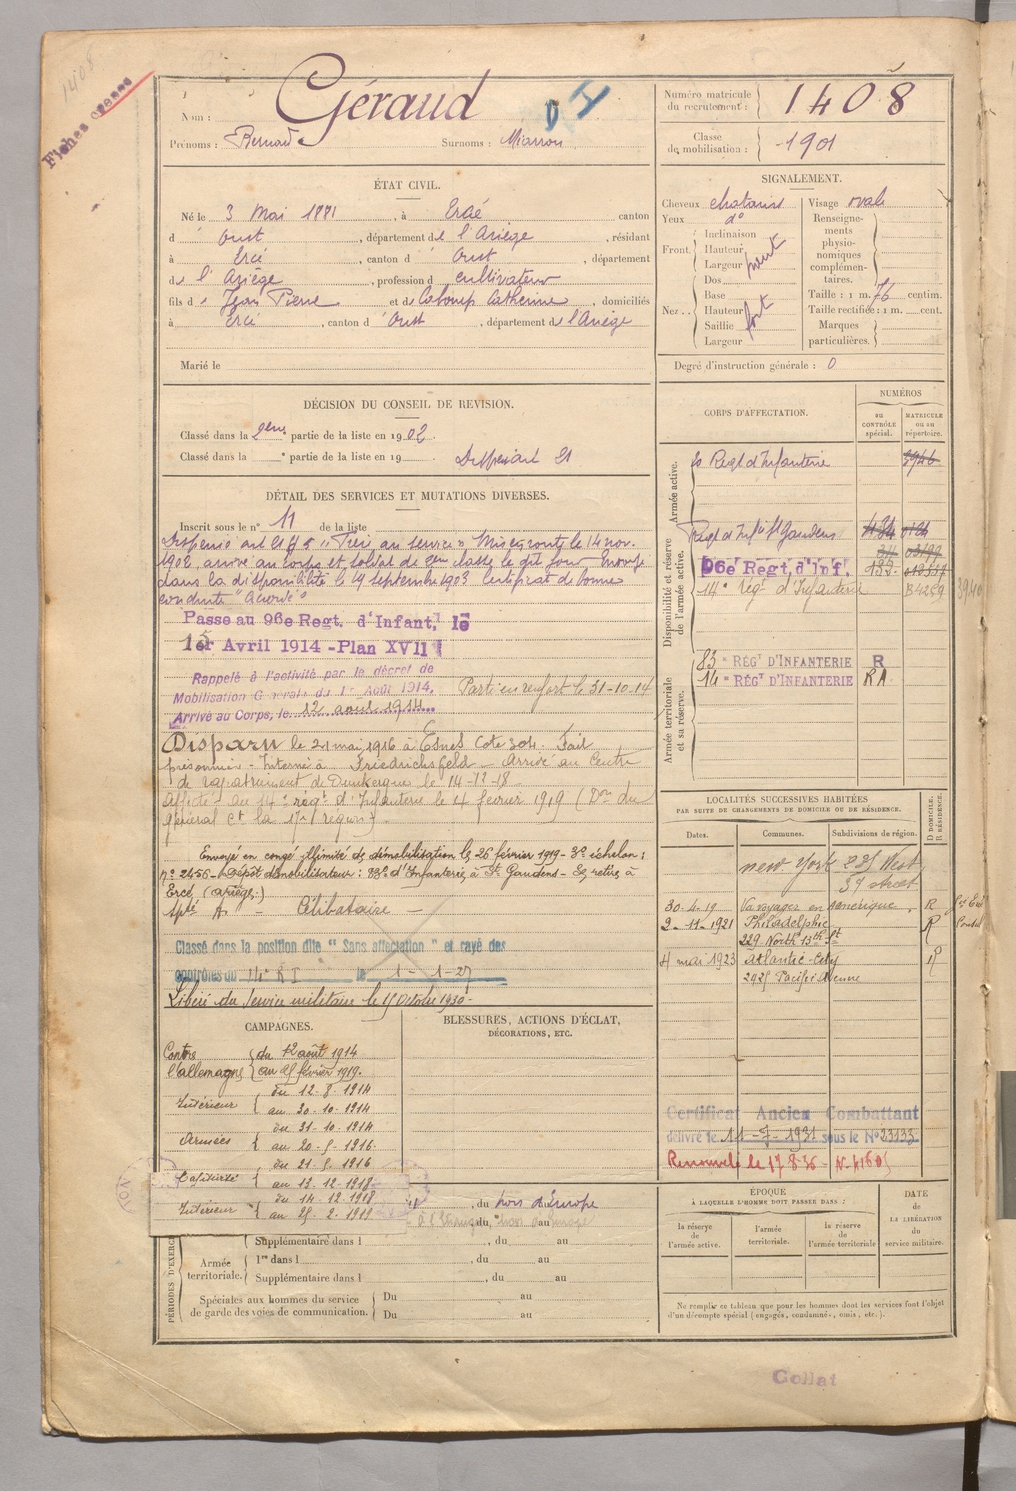 1408
Fiches creees
Nom : Géraud
Prénoms : Bernard Surnoms : Miarron
Numéro matricule du recrutement : 1408
Classe de mobilisation : 1901
ÉTAT CIVIL.
Né le 3 Mai 1881, à Ercé canton
d' Oust, département de l'Ariège, résidant
à Ercé, canton d' Oust, département
de l'Ariège, profession d cultivateur
fils de Jean Pierre et de Caloup Catherine, domiciliés
à Ercé, canton d' Oust, département de l'Ariège
Marié le
SIGNALEMENT.
Cheveux chatains
Yeux do
Front : Inclinaison Hauteur Largeur
Nez : Dos Base Hauteur Saillie Largeur fort
Visage ovale
Renseignements physionomiques complémentaires.
Taille : 1 m. 76 centim.
Taille rectifiée : 1 m. cent.
Marques particulières.
Degré d'instruction générale : 0
DÉCISION DU CONSEIL DE REVISION.
Classé dans la 2eme partie de la liste en 1902.
Classé dans la e partie de la liste en 19 Dispensé art 21
DÉTAIL DES SERVICES ET MUTATIONS DIVERSES.
Inscrit sous le n° 11 de la liste
Dispensé art 21 "Frère au service" Mis en route le 14 nov.
1902, arrivé au corps et soldat de 2eme classe le dit jour. Envoyé
dans la disponibilité le 19 septembre 1903 Certificat de bonne
conduite "Accordé"
Passe au 96e Regt. d'Infant, le
15 Avril 1914 - Plan XVII
Rappelé à l'activité par le décret de
Mobilisation Générale du 1er Août 1914.
Arrivé au Corps, le 12 aout 1914
Parti en renfort le 31-10-14
Disparu le 21 mai 1916 à Esnes Cote 304. Fait
prisonnier - Interné à Friedrichsfeld - Arrivé au Centre
de rapatriement de Dunkerque le 14-12-18
Affecté au 14e régt d'Infanterie le 4 février 1919 (Don du
général Ct la 17e région).
Envoyé en congé illimité de démobilisation le 26 février 1919 - 3e échelon :
n° 2456 - Dépôt démobilisateur : 83e d'Infanterie, à St Gaudens - Se retire à
Ercé (Ariège.)
Apté A - Célibataire -
Classé dans la position dite "Sans affectation" et rayé des
contrôles du 14e R I le 1-1-27
Libéré du service militaire le 15 Octobre 1930 -
CORPS D'AFFECTATION.
NUMÉROS
au CONTRÔLE spécial.
MATRICULE ou au répertoire.
Armée active.
Regt d'Infanterie 3946
Disponibilité et réserve de l'armée active.
Regt d'Infie St Gaudens
96e Regt. d'Inf.
14e régt d'Infanterie
Armée territoriale et sa réserve.
83e RÉGT D'INFANTERIE R
14e RÉGT D'INFANTERIE RA
LOCALITÉS SUCCESSIVES HABITÉES
PAR SUITE DE CHANGEMENTS DE DOMICILE OU DE RÉSIDENCE.
Dates. Communes. Subdivisions de région. D DOMICILE. R RÉSIDENCE.
New York 225 West
39 street
30-4-19 Va voyager en Amérique R
2-11-1921 Philadelphie R
229 North 13th St
4 mai 1923 Atlantic-City R
2425 Pacific Avenue
Certificat Ancien Combattant
délivré le 11-7-1931 sous le N° 23133
Renouvelé le 17 8 36
CAMPAGNES.
Contre l'allemagne { du 12 août 1914
au 25 février 1919.
Intérieur { du 12-8-1914
au 30-10-1914
Armées { du 31-10-1914
au 20-5-1916
Captivité { du 21-5-1916
au 13-12-1918
Intérieur { du 14-12-1918
au 25-2-1919
BLESSURES, ACTIONS D'ÉCLAT,
DÉCORATIONS, ETC.
PÉRIODES D'EXERCICES
, du hors d'Europe
Supplémentaire dans l , du au
Armée territoriale. 1re dans l , du au
Supplémentaire dans l , du au
Spéciales aux hommes du service de garde des voies de communication. Du au
Du au
ÉPOQUE
À LAQUELLE L'HOMME DOIT PASSER DANS :
la réserve de l'armée active.
l'armée territoriale.
la réserve de l'armée territoriale
DATE de LA LIBÉRATION du service militaire.
Ne remplir ce tableau que pour les hommes dont les services font l'objet
d'un décompte spécial (engagés, condamnés, omis, etc.).
Collat